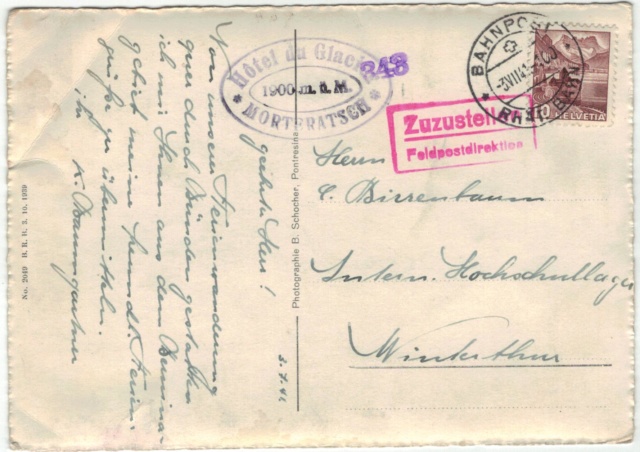 Hôtel du Glacier
1900 m. ü. M.
* MORTERATSCH *
348
BAHNPOST
-3.VII.41
RHÄT. BAHN
HELVETIA
Zuzustell
Feldpostdirektion
Herrn
E. Birrenbaum
Intern. Hochschullager
Winterthur
Photographie B. Schocher, Pontresina
No. 2049 B. R. B. 3. 10. 1939
3.7.41
geehrter Herr!
Von unserer Ferienwanderung
quer durch Bünden gestatten
ich mir Ihnen aus dem Bernina-
gebiet meine freundl. Ferien-
grüße zu übermitteln.
Ihr K. Baumgartner